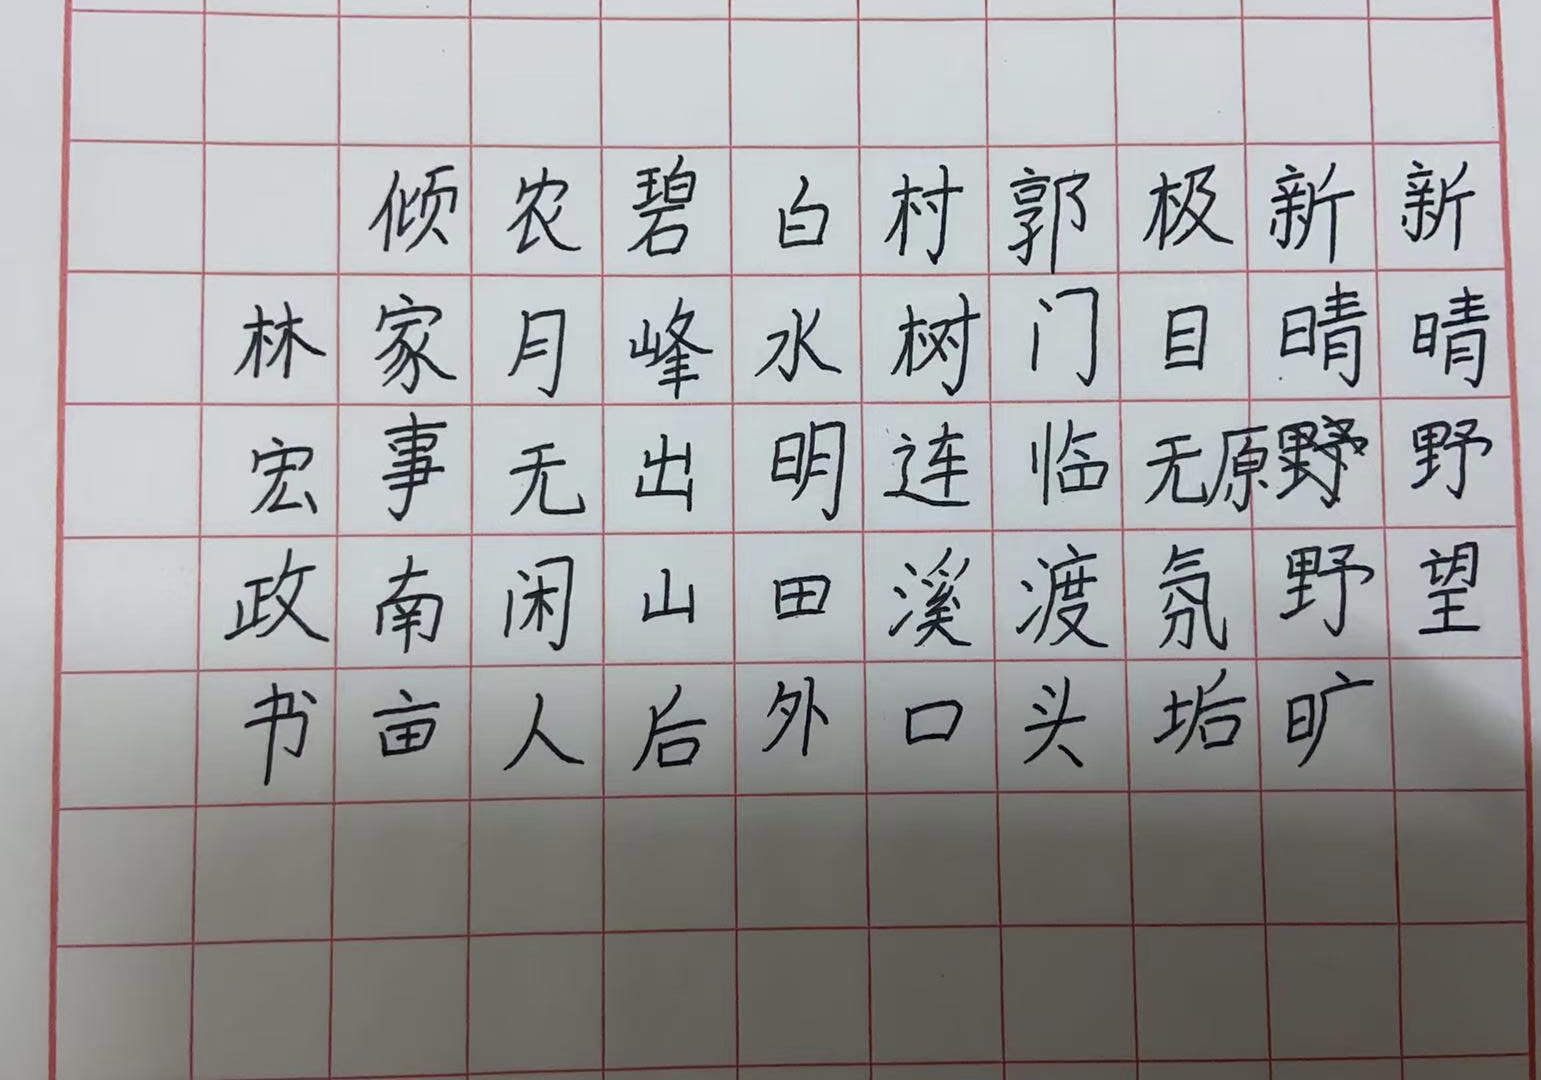 新晴野望
新晴原野旷
极目无氛垢
郭门临渡头
村树连溪口
白水明田外
碧峰出山后
农月无闲人
倾家事南亩
林宏政书